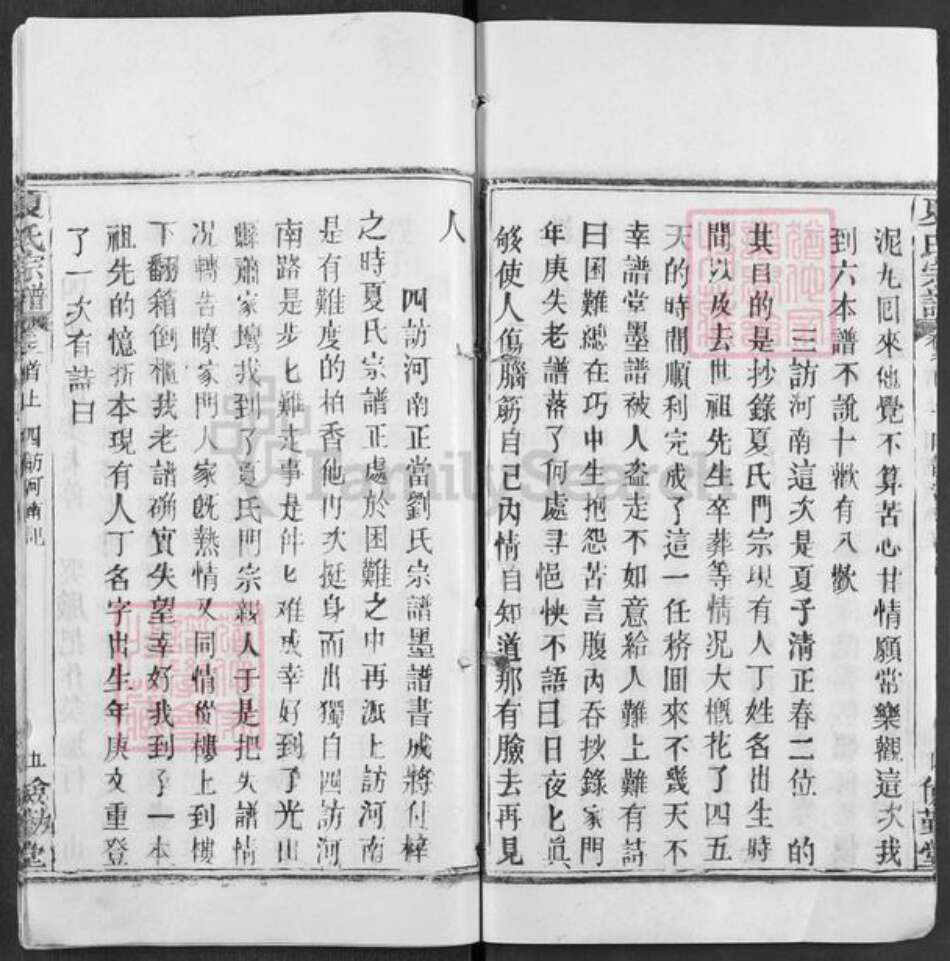 泥九回來他覺不算苦心甘情願常樂觀這次我
到六本譜不說十歡有八歡
三訪河南這次是夏子清正春二位的
其目的是抄錄夏氏門宗現有人丁姓名出生時
間以及去世祖先生卒葬等情况大概花了四五
天的時間順利完成了這一任務回來不幾天不
幸譜堂墨譜被人盗走不如意給人難上難有詩
曰困難總在巧中生抱怨苦言腹內吞抄錄家門
年庚失老譜落了何處尋悒怏不語日日夜匕
够使人傷腦筋自己內情自知道那有臉去再見
人
四訪河南正當劉氏宗譜墨譜書成將付梓
之時夏氏宗譜正處於困難之中再派上訪河南
是有難度的柏香他再次挺身而出獨自四訪河
南路是步匕難走事是件匕难成幸好到了光山
縣蕭家壪我到了夏氏門宗親人于是把失譜情
况轉告瞭家門人家既熱情又同情從樓上到樓
下翻箱倒櫃我老譜确實失望幸好我到了一本
祖先的憶折本現有人丁名字出生年庚及重登
了一次有詩曰
夏氏宗譜
卷首上 四訪河南記